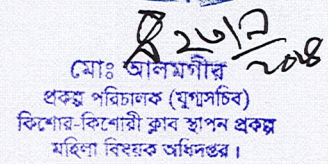 ২৩/৭
২০১৪
মোঃ আলমগীর
প্রকল্প পরিচালক (যুগ্মসচিব)
কিশোর-কিশোরী ক্লাব স্থাপন প্রকল্প
মহিলা বিষয়ক অধিদপ্তর।